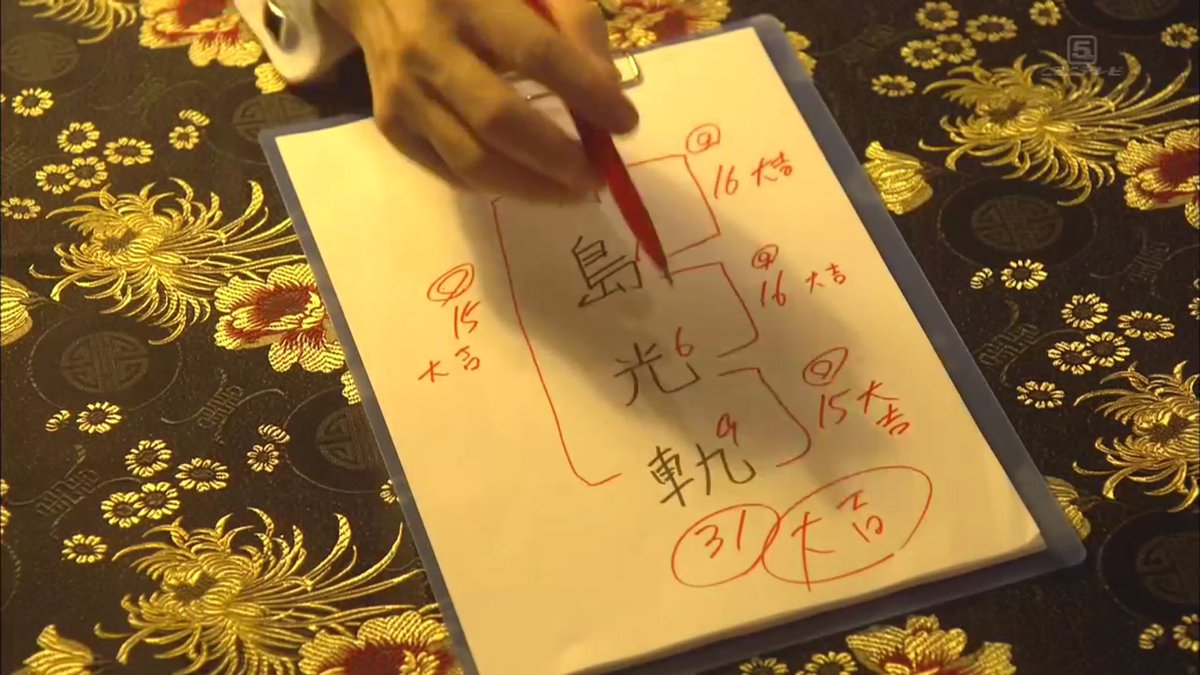 16 大吉
島
16 大吉
15
大吉
光 6
15 大吉
軌 9
31 大吉
5